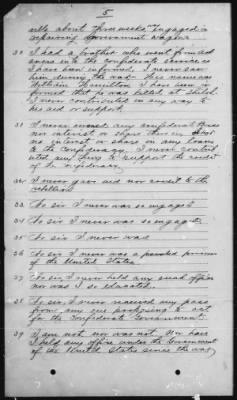 5
about three weeks engaged in
repairing Government wagons
30 I had a brother who went from Ark
ansas into the Confederate service as
I have been informed. I never saw
him during the war. His name was
William Hamilton I have been in-
formed that he was killed at Shiloh.
I never contributed in any way to
his aid or support
31 I never owned any Confederate Bonds
no interest or share therein
no interest or share in any loans
to the Confederacy. I never contrib
uted any thing to support the credit
of the Confederacy.
32 I never gave aid nor credit to the
rebellion
33 No sir I never was so engaged
34 No sir I never was so engaged
35 No sir I never was
36 No sir I never was a paroled prisoner
of the United States.
37 No sir I never held any such office
nor was I so educated.
38 No sir, I never received any pass
from any one purposing to act
for the Confederate Government.
39 I am not nor was not. Nor have
I held any office under the Government
of the United States since the war